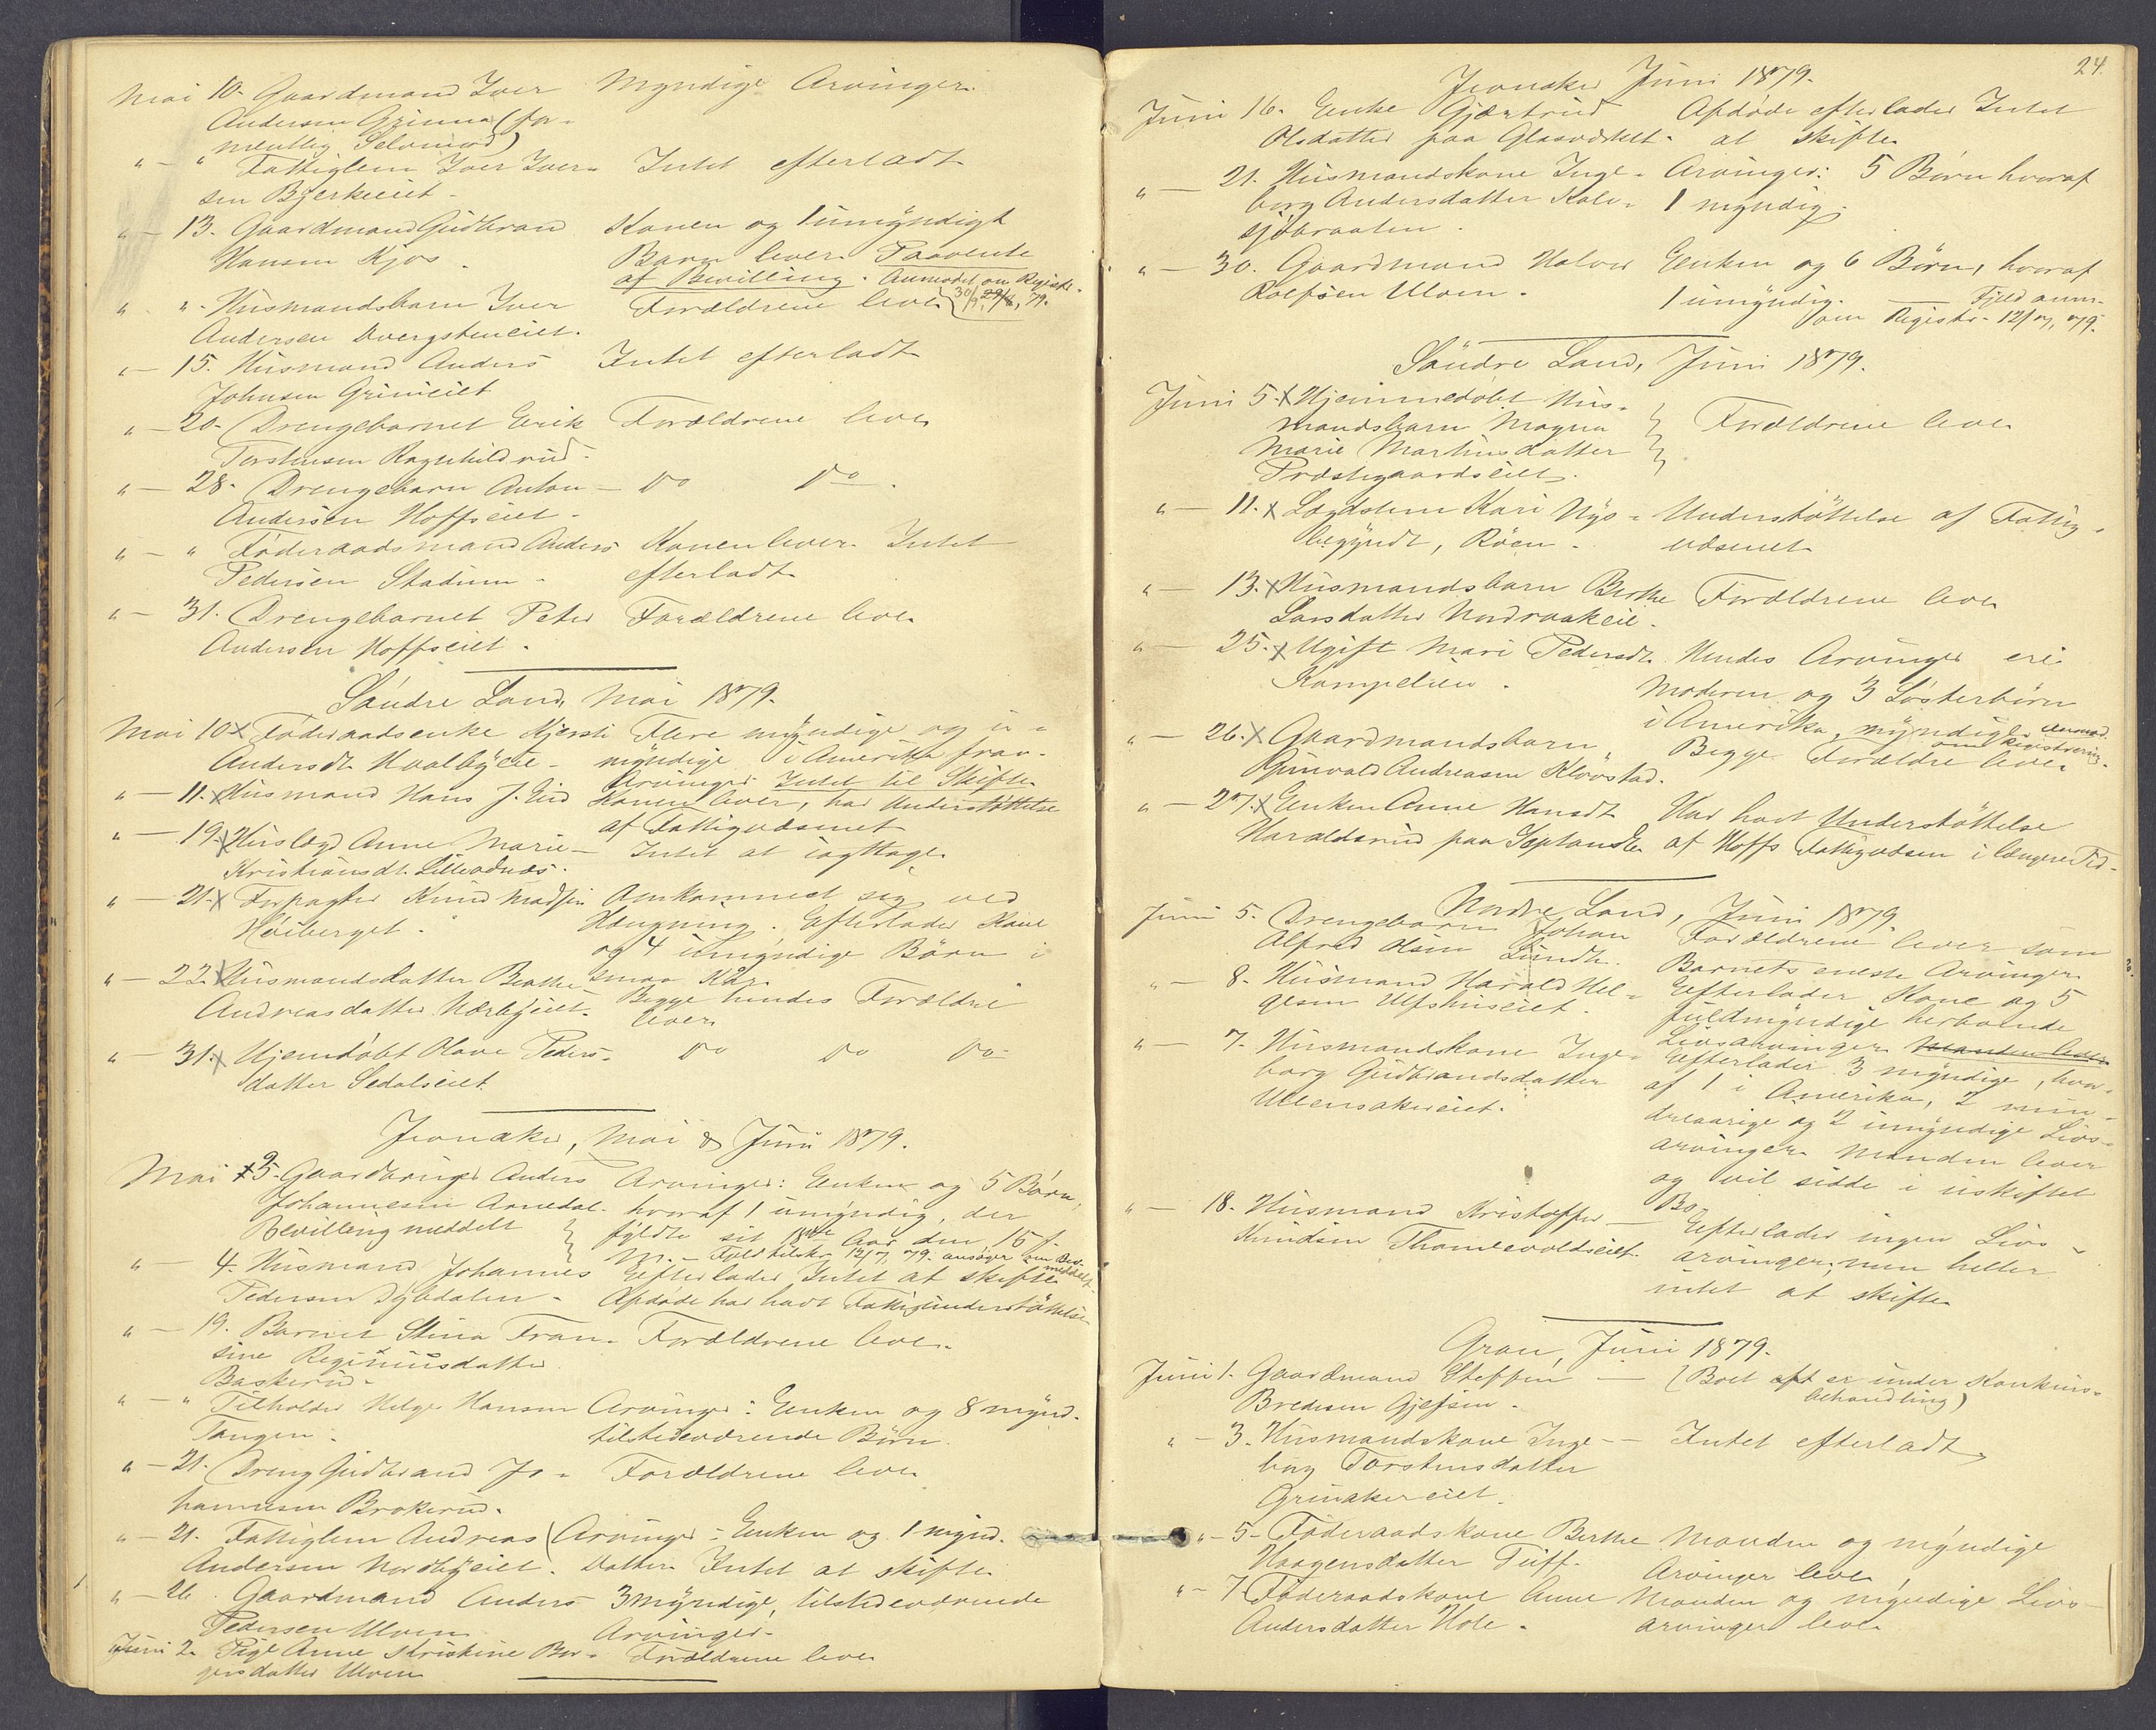 Mai 10. Gaardmand Iver Myndige Arvinger.
Andersen Grinna (for-
mentlig Selvmord)
" - " Fattiglem Iver Iver- Intet efterladt
sen Bjerkeeiet.
" - 13. Gaardmand Gudbran Konen og 1 umyndigt
Hansen Kjos. Barn lever. Paavente
af Bevilling. Anmodet om Registr.
" " - Husmandsbarn Iver Forældrene lever 30/9, 79.
Andersen Dvergsteneiet.
" - 15. Husmand Anders Intet efterladt
Johnsen Grimeiet
" - 20. Drengebarnet Erik Forældrene lever
Torstensen Ragnhildrud.
" - 28. Drengebarn Anton - Do Do.
Andersen Hoffseiet.
" - " Føderaadsmand Anders Konen lever. Intet
Pedersen Stadum. efterladt.
" - 31. Drengebarnet Peter Forældrene lever
Andersen Hoffseiet.
Søndre Land, Mai 1879.
Mai 10 x Føderaadsenke Kjersti Flere myndige og u-
Andersdt. Haalbyeie. myndige i Amerika frav.
Arvinger. Intet til Skifte
" - 11. x Husmand Hans J. Eid Konen lever, har Understøttelse
af Fattigvæsenet
" - 19. x Huslægd Anne Marie - Intet at iagttage.
Kristiansdt. Lilleodnæs.
" - 21. x Forpagter Knud Madsen Omkommet sig ved
Høiberget. Hængning. Efterlader Kone
og 4 umyndige Børn i
smaa Kår.
" - 22. x Husmandsdatter Berthe Begge hendes Forældre
Andreasdatter Nærbyeiet. lever.
" - 31. x Hjemdøbt Olave Peders- Do Do Do
datter Sedalseiet.
Jevnaker, Mai & Juni 1879.
Mai 25. Gaardbruger Anders Arvinger: Enken og 5 Børn,
Johannesen Arnedal. hvoraf 1 umyndig, der
Bevilling meddelt fyldte sit 18de Aar den 15 f.
M. - Fjeld tilskr. 12/7, 79. ansøger om Bev. meddelt.
" - 4. Husmand Johannes Efterlader Intet at skifte
Pedersen Dybdalen. Afdøde har havt Fattigunderstøttelse
" - 19. Barnet Stina Fran- Forældrene lever.
sine Reginiusdatter
Baskerud.
" - " Tilholder Helge Hansen Arvinger: Enken og 8 mynd.
Tangen. tilstedeværende Børn.
" - 21. Dreng Gudbrand Jo- Forældrene lever
hannesen Brokerud.
" - 21. Fattiglem Andreas Arvinger: Enken og 1 mynd.
Andersen Nordbyeiet. Datter. Intet at skifte.
" - 26. Gaardmand Anders 3 myndige, tilstedeværende
Pedersen Ulven Arvinger.
Juni 2. Pige Anne Kristine Bor- Forældrene lever
gersdatter Ulven
24.
Jevnaker Juni 1879.
Juni 16. Enke Gjærtrud Afdøde efterlader Intet
Olsdatter paa Glasværket. at skifte.
" - 21. Husmandskone Inge- Arvinger: 5 Børn hvoraf
borg Andersdatter Kalv- 1 myndig.
sjøbraaten.
" - 30. Gaardmand Halvor Enken og 6 Børn, hvoraf
Rolfsen Ulven. 1 umyndig. - Fjeld anm.
om Registr. 12/7, 79.
Søndre Land, Juni 1879.
Juni 5. x Hjemmedøbt Hus-
mandsbarn Magna Forældrene lever
Marie Martinsdatter
Præstegaardseiet.
" - 11. x Lægdslem Kari Nys- Understøttelse af Fattig-
begyndt, Røen. væsenet
" - 13. x Husmandsbarn Berthe Forældrene lever
Larsdatter Nordraakeie.
" - 25. x Ugift Mari Pedersdt. Hendes Arvinger ere
Kampelien. Moderen og 3 Søsterbørn
i Amerika, myndige. Anmod.
om Registrering.
" - 26. x Gaardmandsbarn, Begge Forældre lever
Gunvald Andreasen Kløvstad.
" - 27. x Enken Anne Hansdt. Har havt Understøttelse
Haraldsrud paa af Hoffs Fattigvæsen i længere Tid.
Nordre Land, Juni 1879.
Juni 5. Drengebarn Johan Forældrene lever som
Alfred Olsen Lundt. Barnets eneste Arvinger.
" - 8. Husmand Harald Hel- Efterlader Kone og 5
gesen Ulfshuseiet. fuldmyndige herboende
Livsarvinger. Manden lever
" - 7. Husmandskone Inge- Efterlader 3 myndige, hvor-
borg Gudbrandsdatter af 1 i Amerika, 2 min-
Ullensakereiet. dreaarige og 2 umyndige Livs-
arvinger. Manden lever
og vil sidde i uskiftet
Bo.
" - 18. Husmand Kristoffer - Efterlader ingen Livs-
Knudsen Thomlevoldseiet. arvinger, men heller
intet at skifte.
Gran, Juni 1879.
Juni 1. Gaardmand Steffen - (Boet er under Konkurs-
Bredesen Gjefsen. behandling)
" - 3. Husmandskone Inge- - Intet efterladt
borg Torstensdatter
Grinakereiet.
" - 5. Føderaadskone Berthe Manden og myndige
Haagensdatter Tuff. Arvinger lever
" - 7. Føderaadskone Anne Manden og myndige Livs-
Andersdatter Hole. arvinger lever